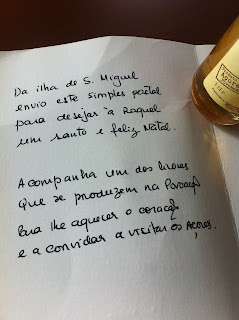 Da ilha de S. Miguel
envio este simples postal
para desejar à Raquel
um santo e feliz Natal.
Acompanha um dos licores
que se produzem na Povoação
Para lhe aquecer o coração
e a convidar a visitar os Açores.